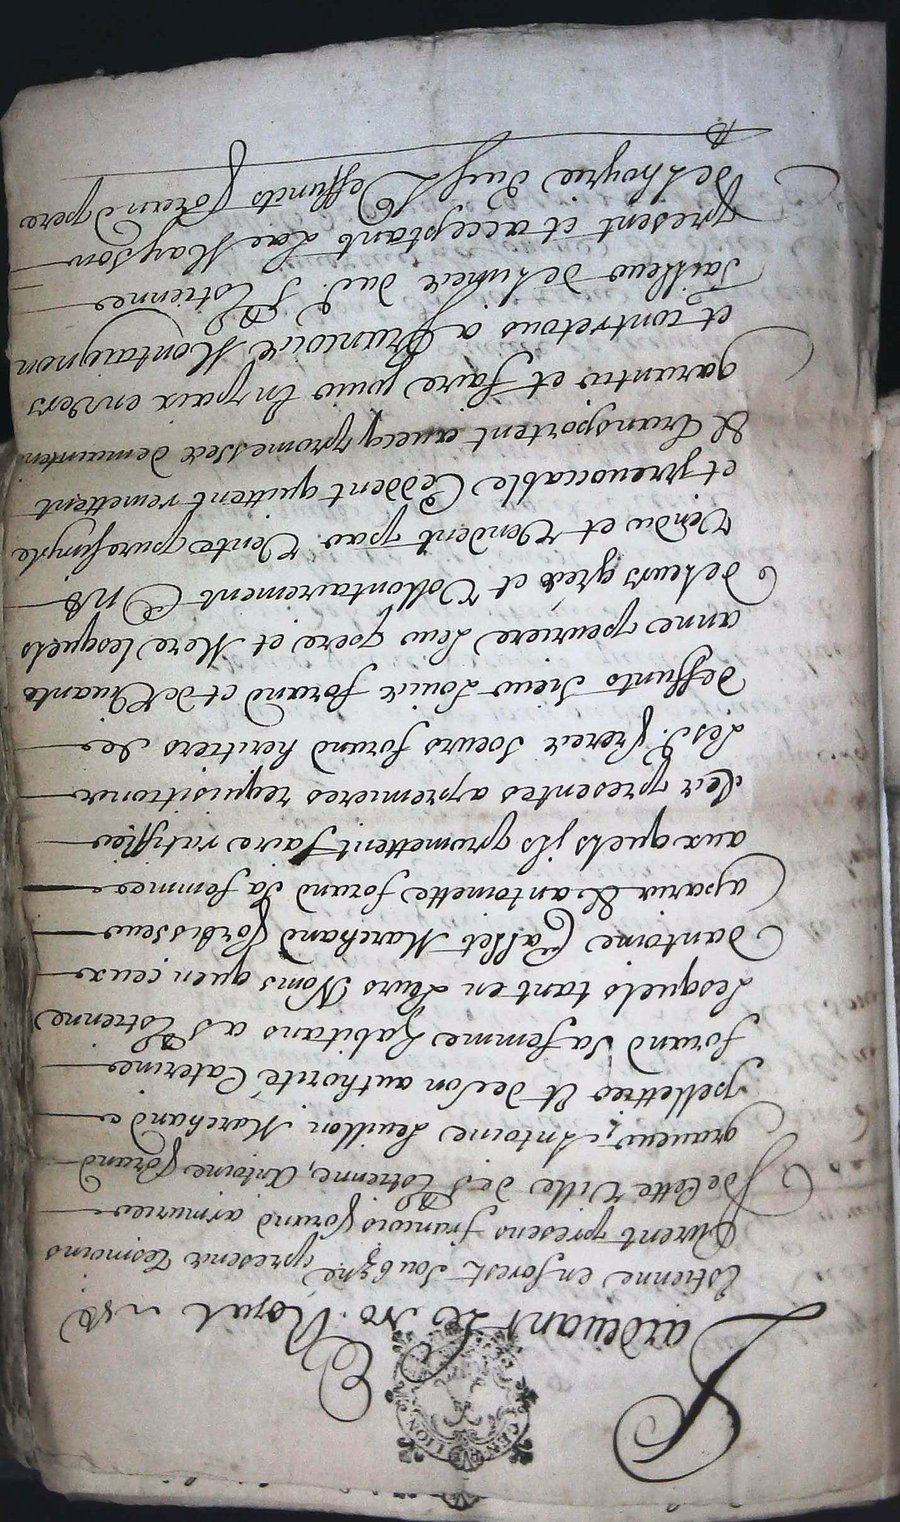 GEN DE LION
Pardevant Le No. Royal a St
Estienne en forest soubzne presents tesmoins
furent presens francois forand armurier
de cette Ville de St Estienne, Antoine forand
graveur, Antoine Seuillon Marchand
pellettier Et de son authorité Caterine
forand sa femme habitans a St Estienne
Lesquels tant en Leurs Noms quen ceux
dantoine Callet Marchand forbisseur
a paris & antoinette forand sa femme
aux quels jls promettent faire ratiffier
Les presentes a premieres requisitions
Lesd. freres soeurs forand heritiers de
deffunts Sieur Louis forand et de Vivante
anne peuriere Leur pere et Mere lesquels
de Leurs gres et Vollontairement Ont
Vendu et Vendent par Vente pure simple
et yrrevocable Cedent quittent remettent
& transportent avecq promesses de mainten
garantir et faire jouir En paix envers
et contre tous a francois Montaignon
Tailleur de Limes dud. St Estienne
present et acceptant Une Mayson
de Lhoyrie dud. deffunts forand pere